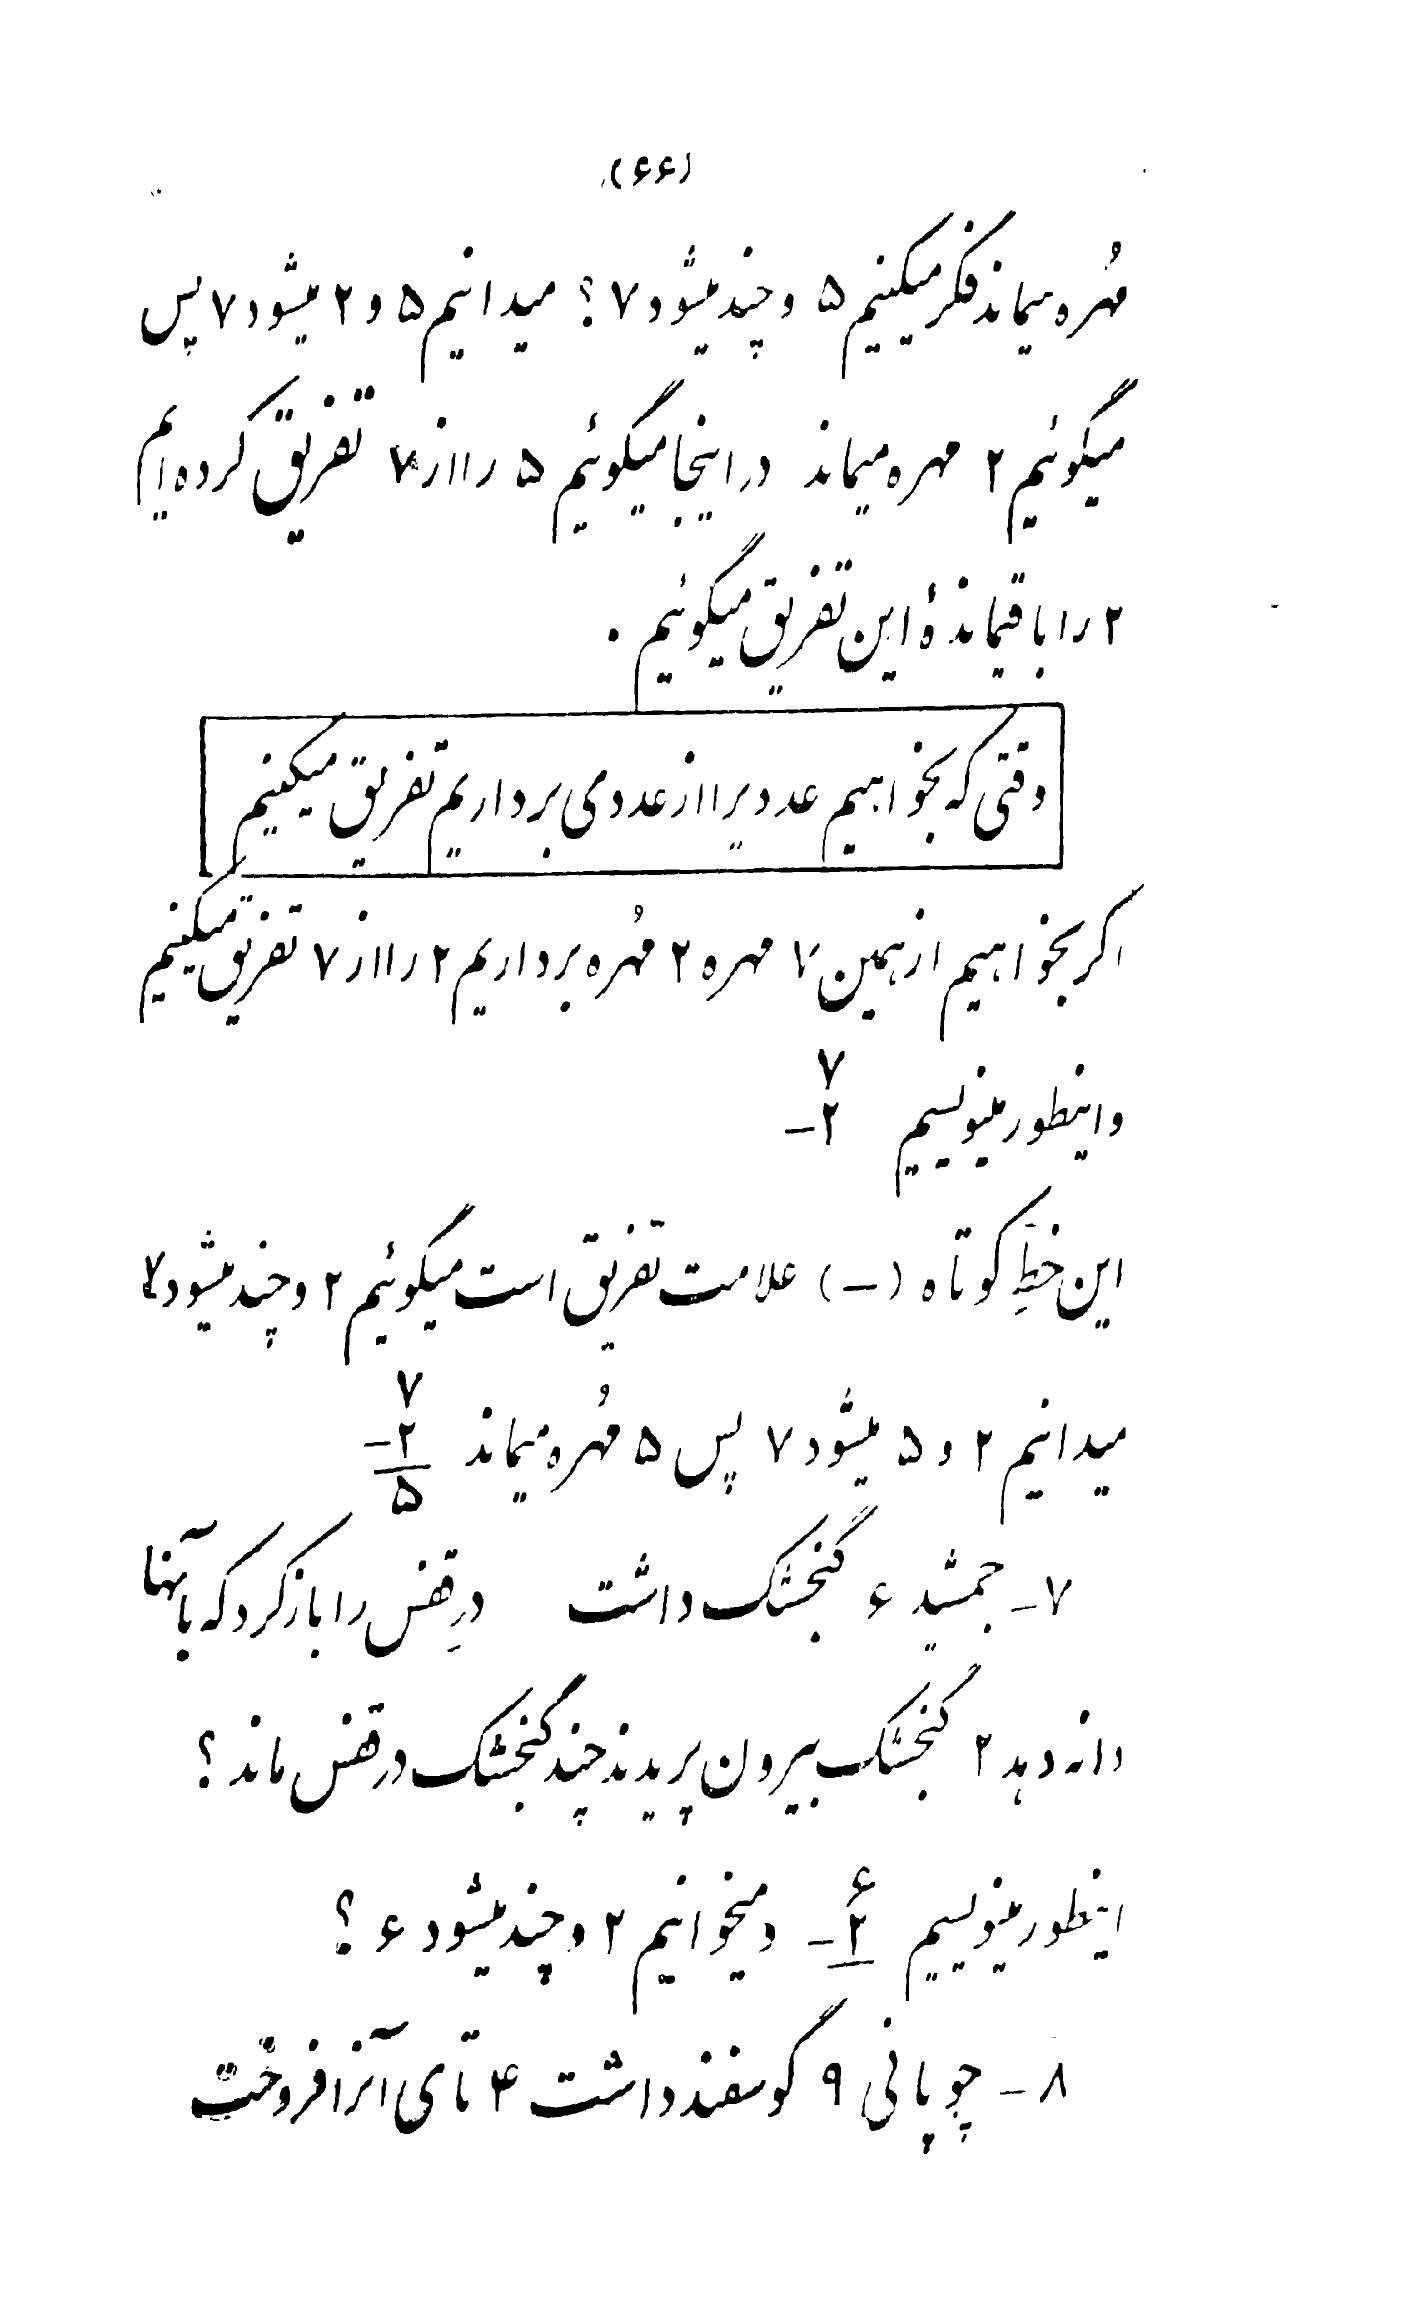 (۶۶)
مُهره میماند فکر میکنیم ۵ و چند میشود ۷ ؟ میدانیم ۵ و ۲ میشود ۷ پس
میگوئیم ۲ مهره میماند در اینجا میگوئیم ۵ را از ۷ تفریق کرده‌ایم
۲ را باقیماندهٔ این تفریق میگوئیم .
وقتی که بخواهیم عددیرا از عددی برداریم تفریق میکنیم
اگر بخواهیم از همین ۷ مهره ۲ مُهره برداریم ۲ را از ۷ تفریق میکنیم
۷
و اینطور مینویسیم ۲ –
این خطِ کوتاه (–) علامت تفریق است میگوئیم ۲ و چند میشود ۷
۷
میدانیم ۲ و ۵ میشود ۷ پس ۵ مُهره میماند ۲ –
۵
۷ – جمشید ۶ گنجشک داشت درِ قفس را باز کرد که بآنها
دانه دهد ۲ گنجشک بیرون پریدند چند گنجشک در قفس ماند ؟
۶
اینطور مینویسیم ۲ – و میخوانیم ۲ و چند میشود ۶ ؟
۸ – چوپانی ۹ گوسفند داشت ۴ تای آنرا فروخت